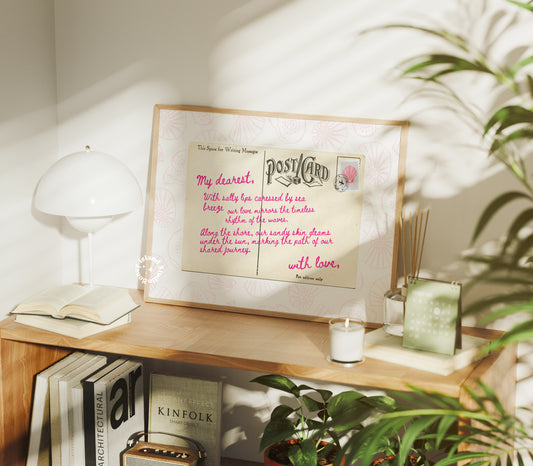 This Space for Writing Messages
POST CARD
My dearest,
With salty lips caressed by sea
breeze our love mirrors the timeless
rhythm of the waves.
Along the shore, our sandy skin gleams
under the sun, marking the path of our
shared journey.
with love,
For address only
ARCHITECTURAL
ar
KINFOLK